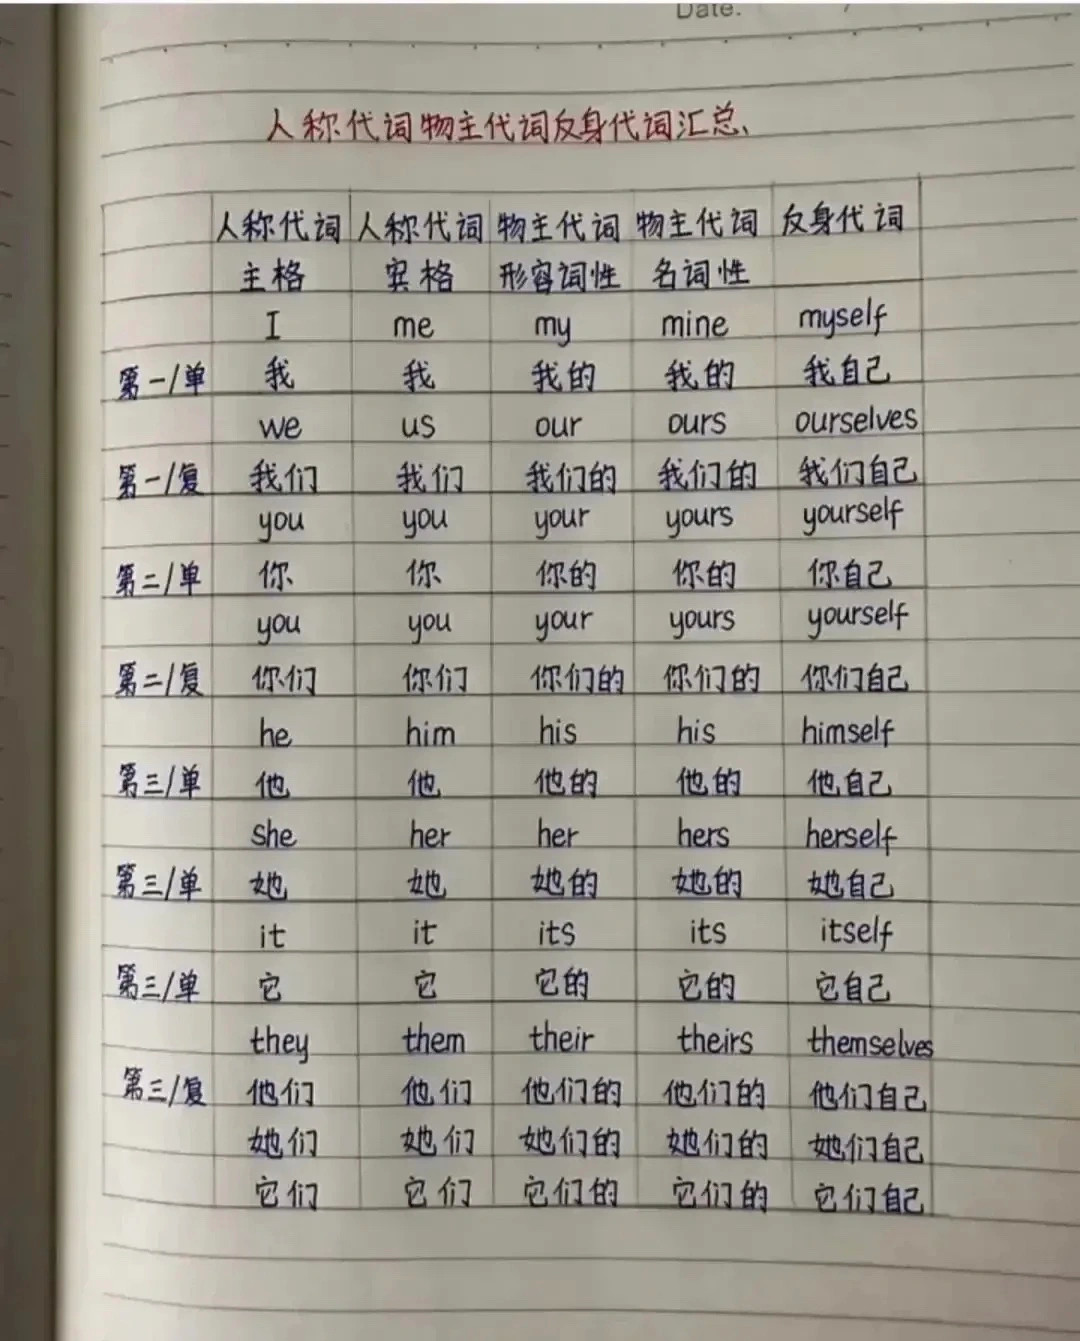 Date:
人称代词物主代词反身代词汇总、
人称代词 人称代词 物主代词 物主代词 反身代词
主格 宾格 形容词性 名词性
I me my mine myself
第一/单 我 我 我的 我的 我自己
we us our ours ourselves
第一/复 我们 我们 我们的 我们的 我们自己
you you your yours yourself
第二/单 你 你 你的 你的 你自己
you you your yours yourself
第二/复 你们 你们 你们的 你们的 你们自己
he him his his himself
第三/单 他 他 他的 他的 他自己
she her her hers herself
第三/单 她 她 她的 她的 她自己
it it its its itself
第三/单 它 它 它的 它的 它自己
they them their theirs themselves
第三/复 他们 他们 他们的 他们的 他们自己
她们 她们 她们的 她们的 她们自己
它们 它们 它们的 它们的 它们自己